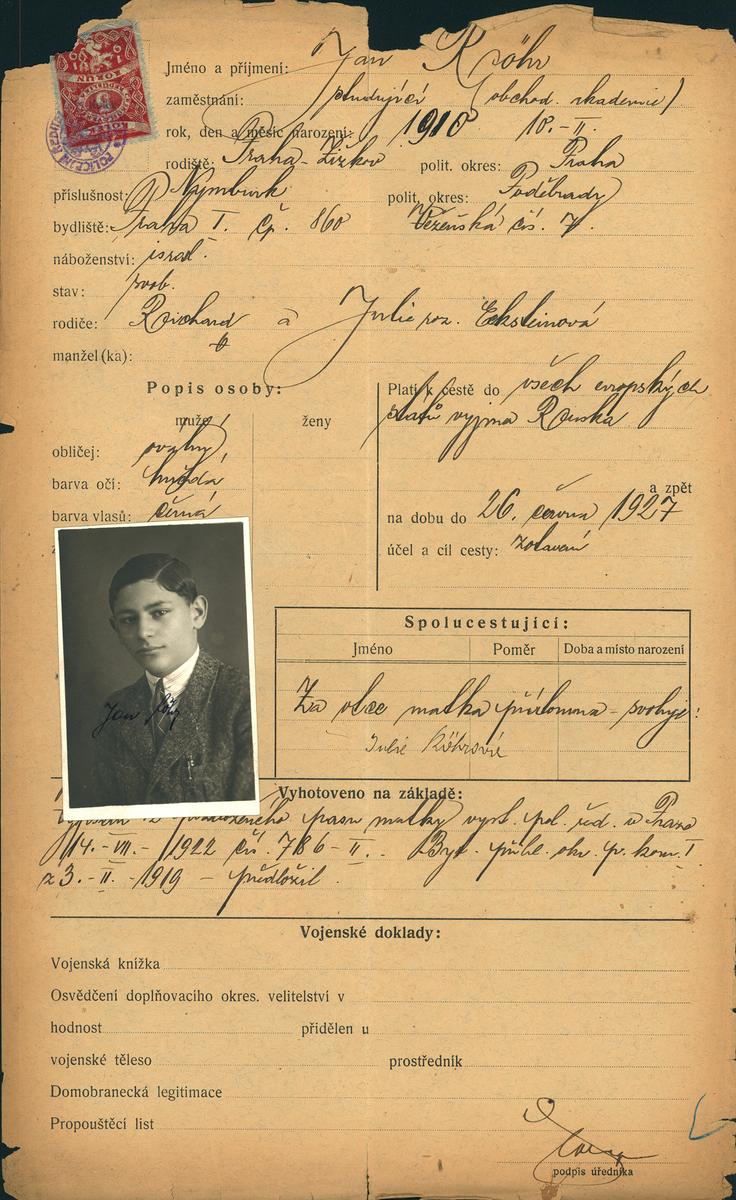 Jméno a příjmení: Jan Köhr
zaměstnání: studující (obchod. akademie)
rok, den a měsíc narození: 1910 10.-II.
rodiště: Praha-Žižkov polit. okres: Praha
příslušnost: Nymburk polit. okres: Poděbrady
bydliště: Praha I. čp. 860 Vězeňská čís. 7.
náboženství: israel.
stav: svob.
rodiče: Richard a Julie roz. Eksteinová
manžel (ka):
Popis osoby:
muže
ženy
obličej: oválný
barva očí: hnědá
barva vlasů: černá
Platí k cestě do všech evropských
států vyjma Ruska
a zpět
na dobu do 26. června 1927
účel a cíl cesty: zotavení
Spolucestující:
Jméno Poměr Doba a místo narození
Za otce matka přítomna - svoluje!
Julie Köhrová
Jan
Vyhotoveno na základě:
pasu matky vyst. pol. řed. v Praze
14.-VII.-1922 čís. 786-II. Byt. přihl. okr. p. kom. I.
z 3.-II.-1919 - předložil.
Vojenské doklady:
Vojenská knížka
Osvědčení doplňovacího okres. velitelství v
hodnost přidělen u
vojenské těleso prostředník
Domobranecká legitimace
Propouštěcí list
podpis úředníka